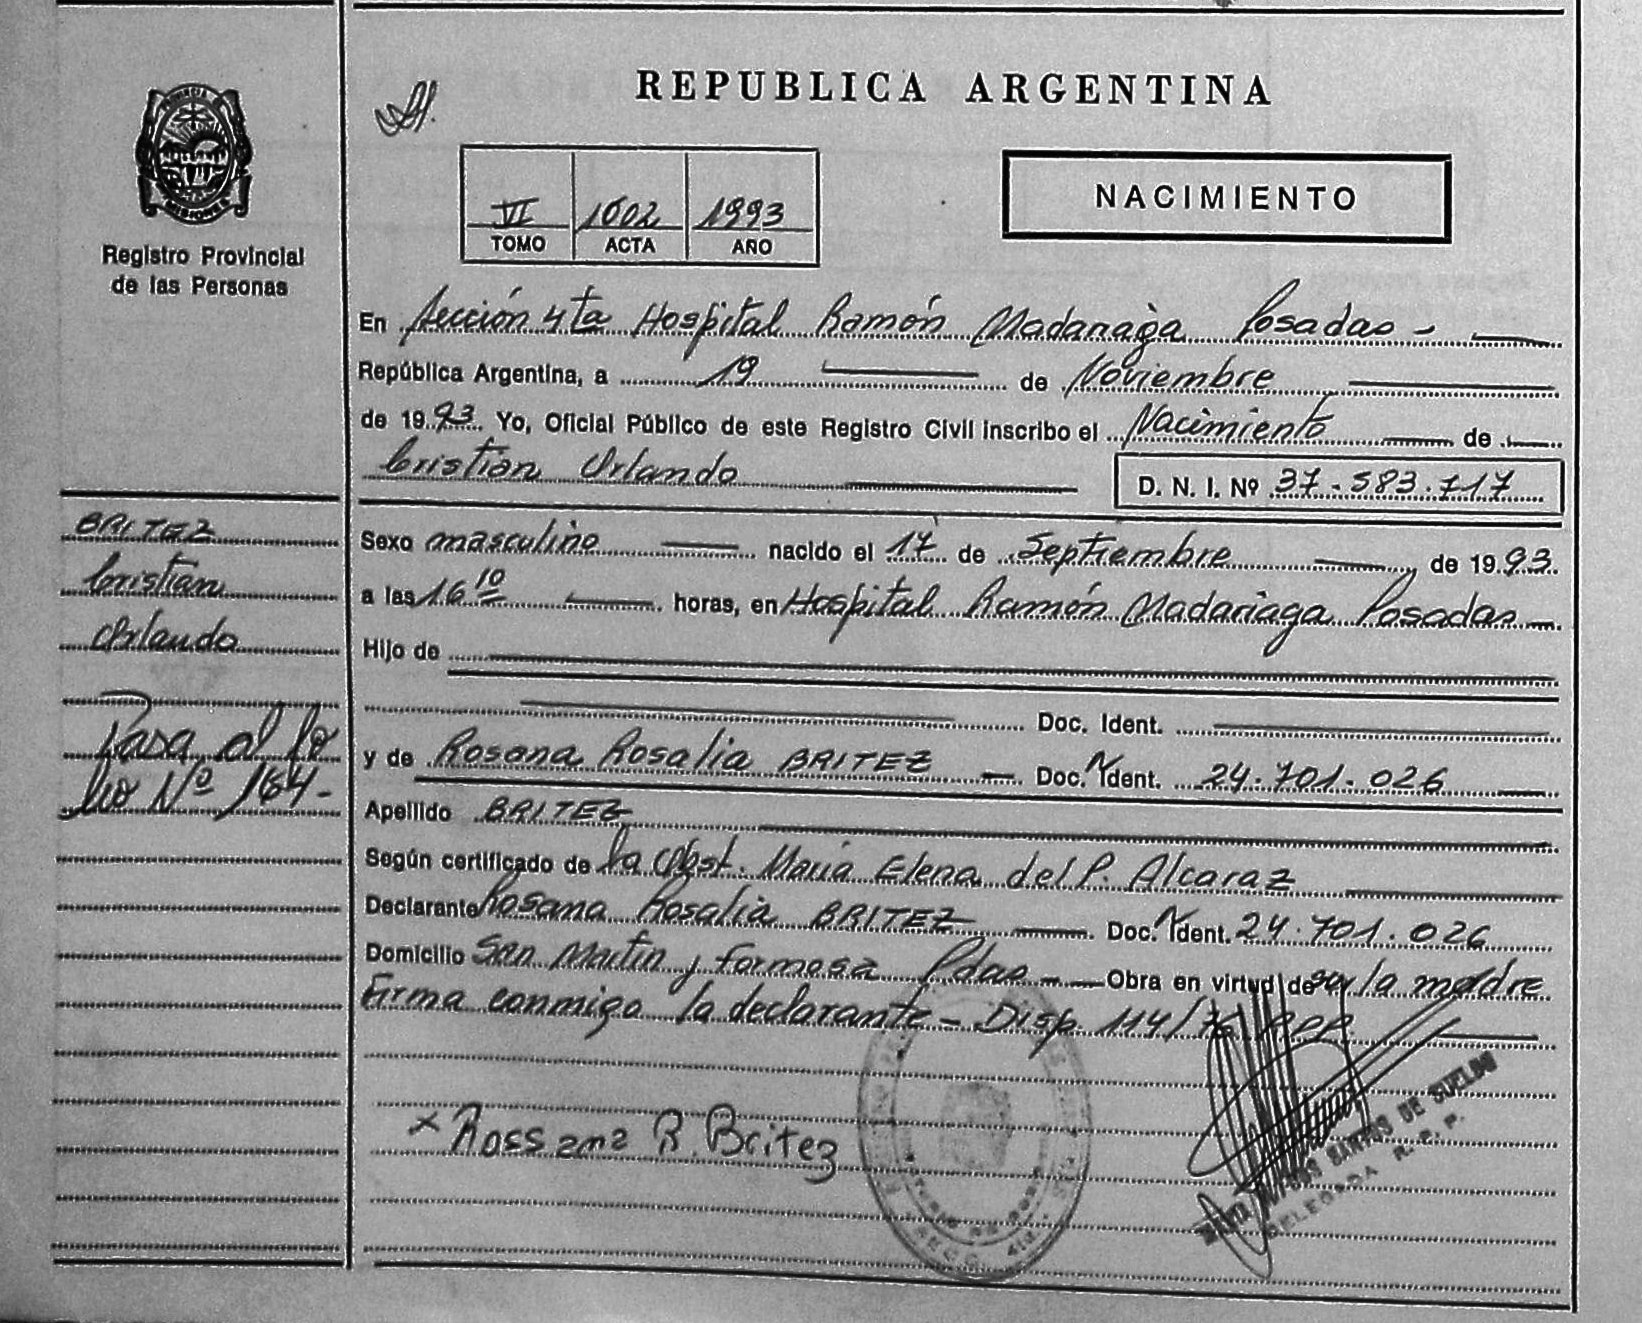 REPUBLICA ARGENTINA
PROVINCIA DE
MISIONES
Registro Provincial
de las Personas
VI 1002 1993
TOMO ACTA AÑO
NACIMIENTO
En Sección 4ta Hospital Ramón Madariaga Posadas -
República Argentina, a 19 de Noviembre
de 1993. Yo, Oficial Público de este Registro Civil inscribo el Nacimiento de
Cristian Orlando
D. N. I. Nº 37.583.717
Sexo masculino nacido el 17 de Septiembre de 1993.
a las 16 10 horas, en Hospital Ramón Madariaga Posadas -
Hijo de
Doc. Ident.
y de Rosana Rosalia BRITEZ - Doc. Ident. 24.701.026
Apellido BRITEZ
Según certificado de la Obst. María Elena del P. Alcaraz
Declarante Rosana Rosalia BRITEZ Doc. Ident. 24.701.026
Domicilio San Martin y Formosa Pdas - Obra en virtud de ser la madre
Firma conmigo la declarante - Disp. 114/76
x Rossana R. Britez
SANTOS DE SUELDO
DELEGADA R. P. P.
BRITEZ
Cristian
Orlando
Pasa al fo
lio Nº 164-